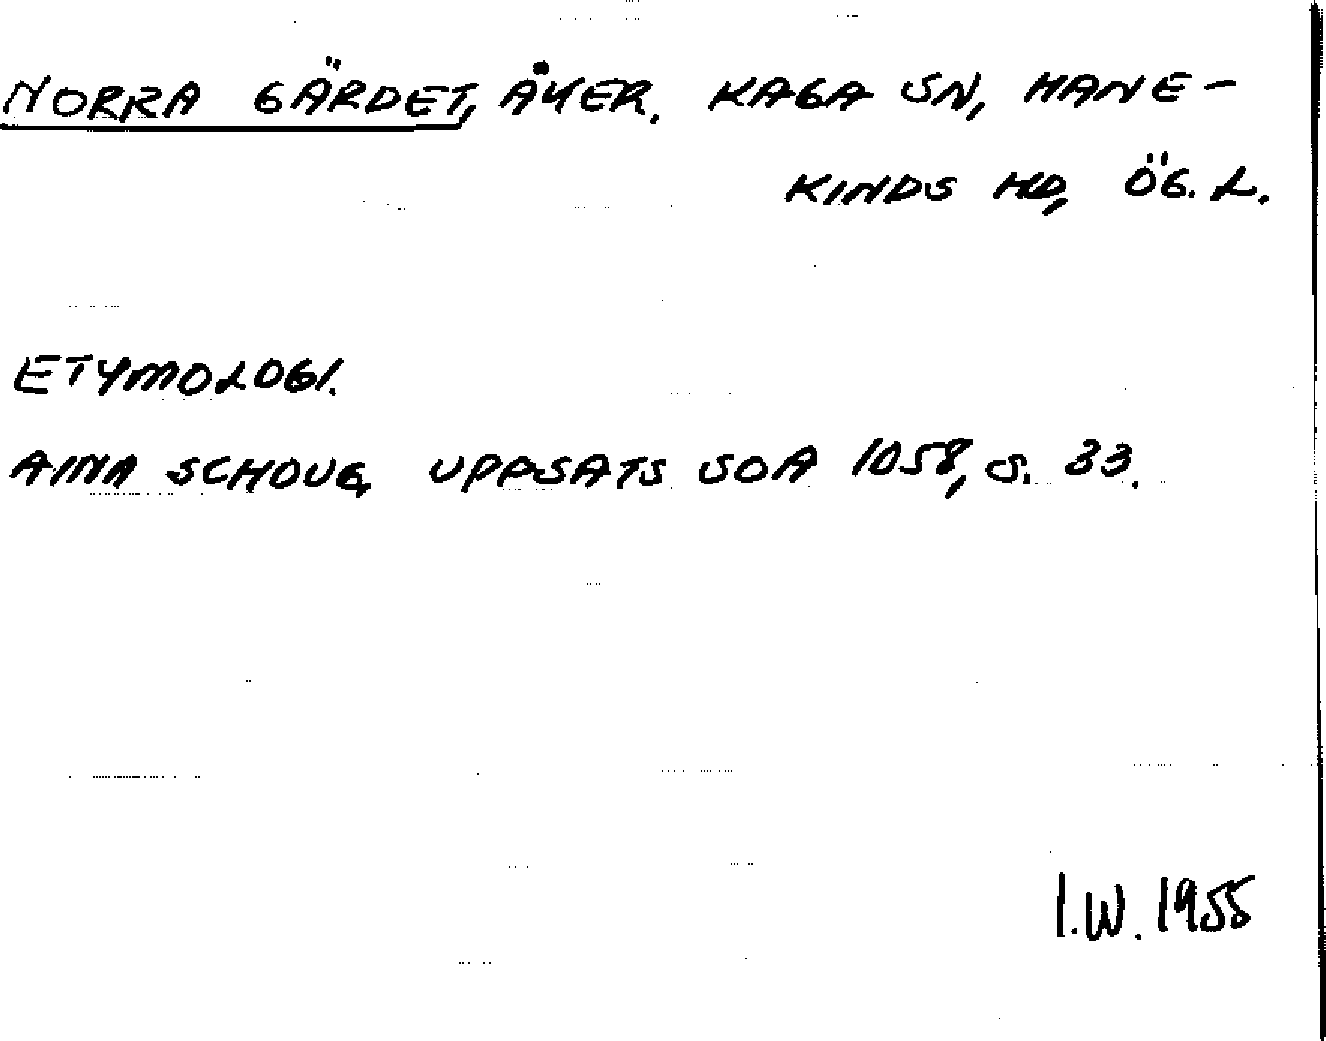 NORRA GÄRDET, ÅKER. KAGA SN, HANE-
KINDS HD, ÖG. L.
ETYMOLOGI.
AINA SCHOUG, UPPSATS SOA 1058, S. 33.
I.W. 1955